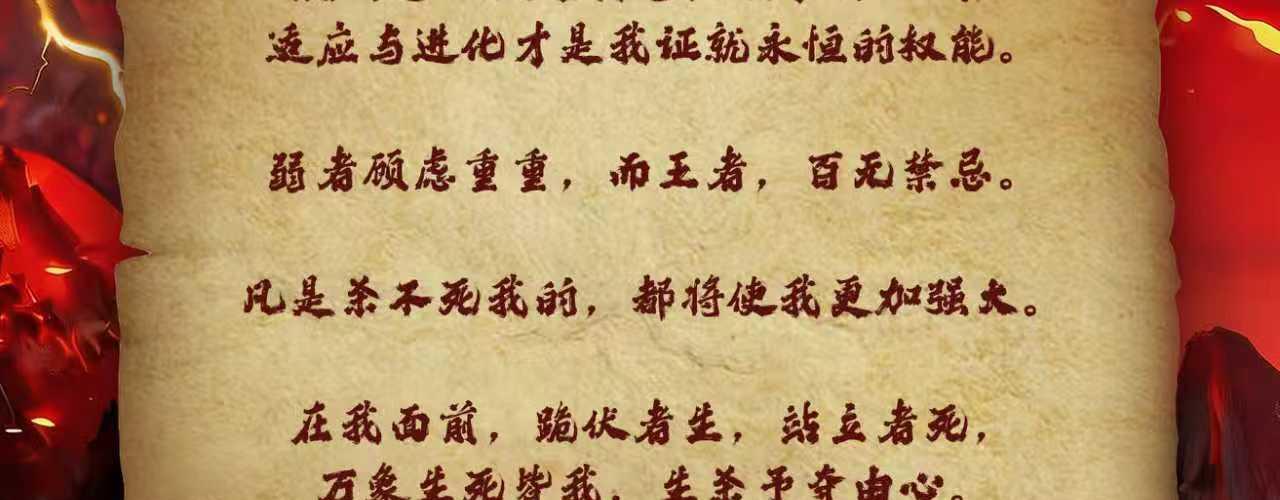 适应与进化才是我证就永恒的权能。
弱者顾虑重重，而王者，百无禁忌。
凡是杀不死我的，都将使我更加强大。
在我面前，跪伏者生，站立者死，
万象生死皆我，生杀予夺由心。